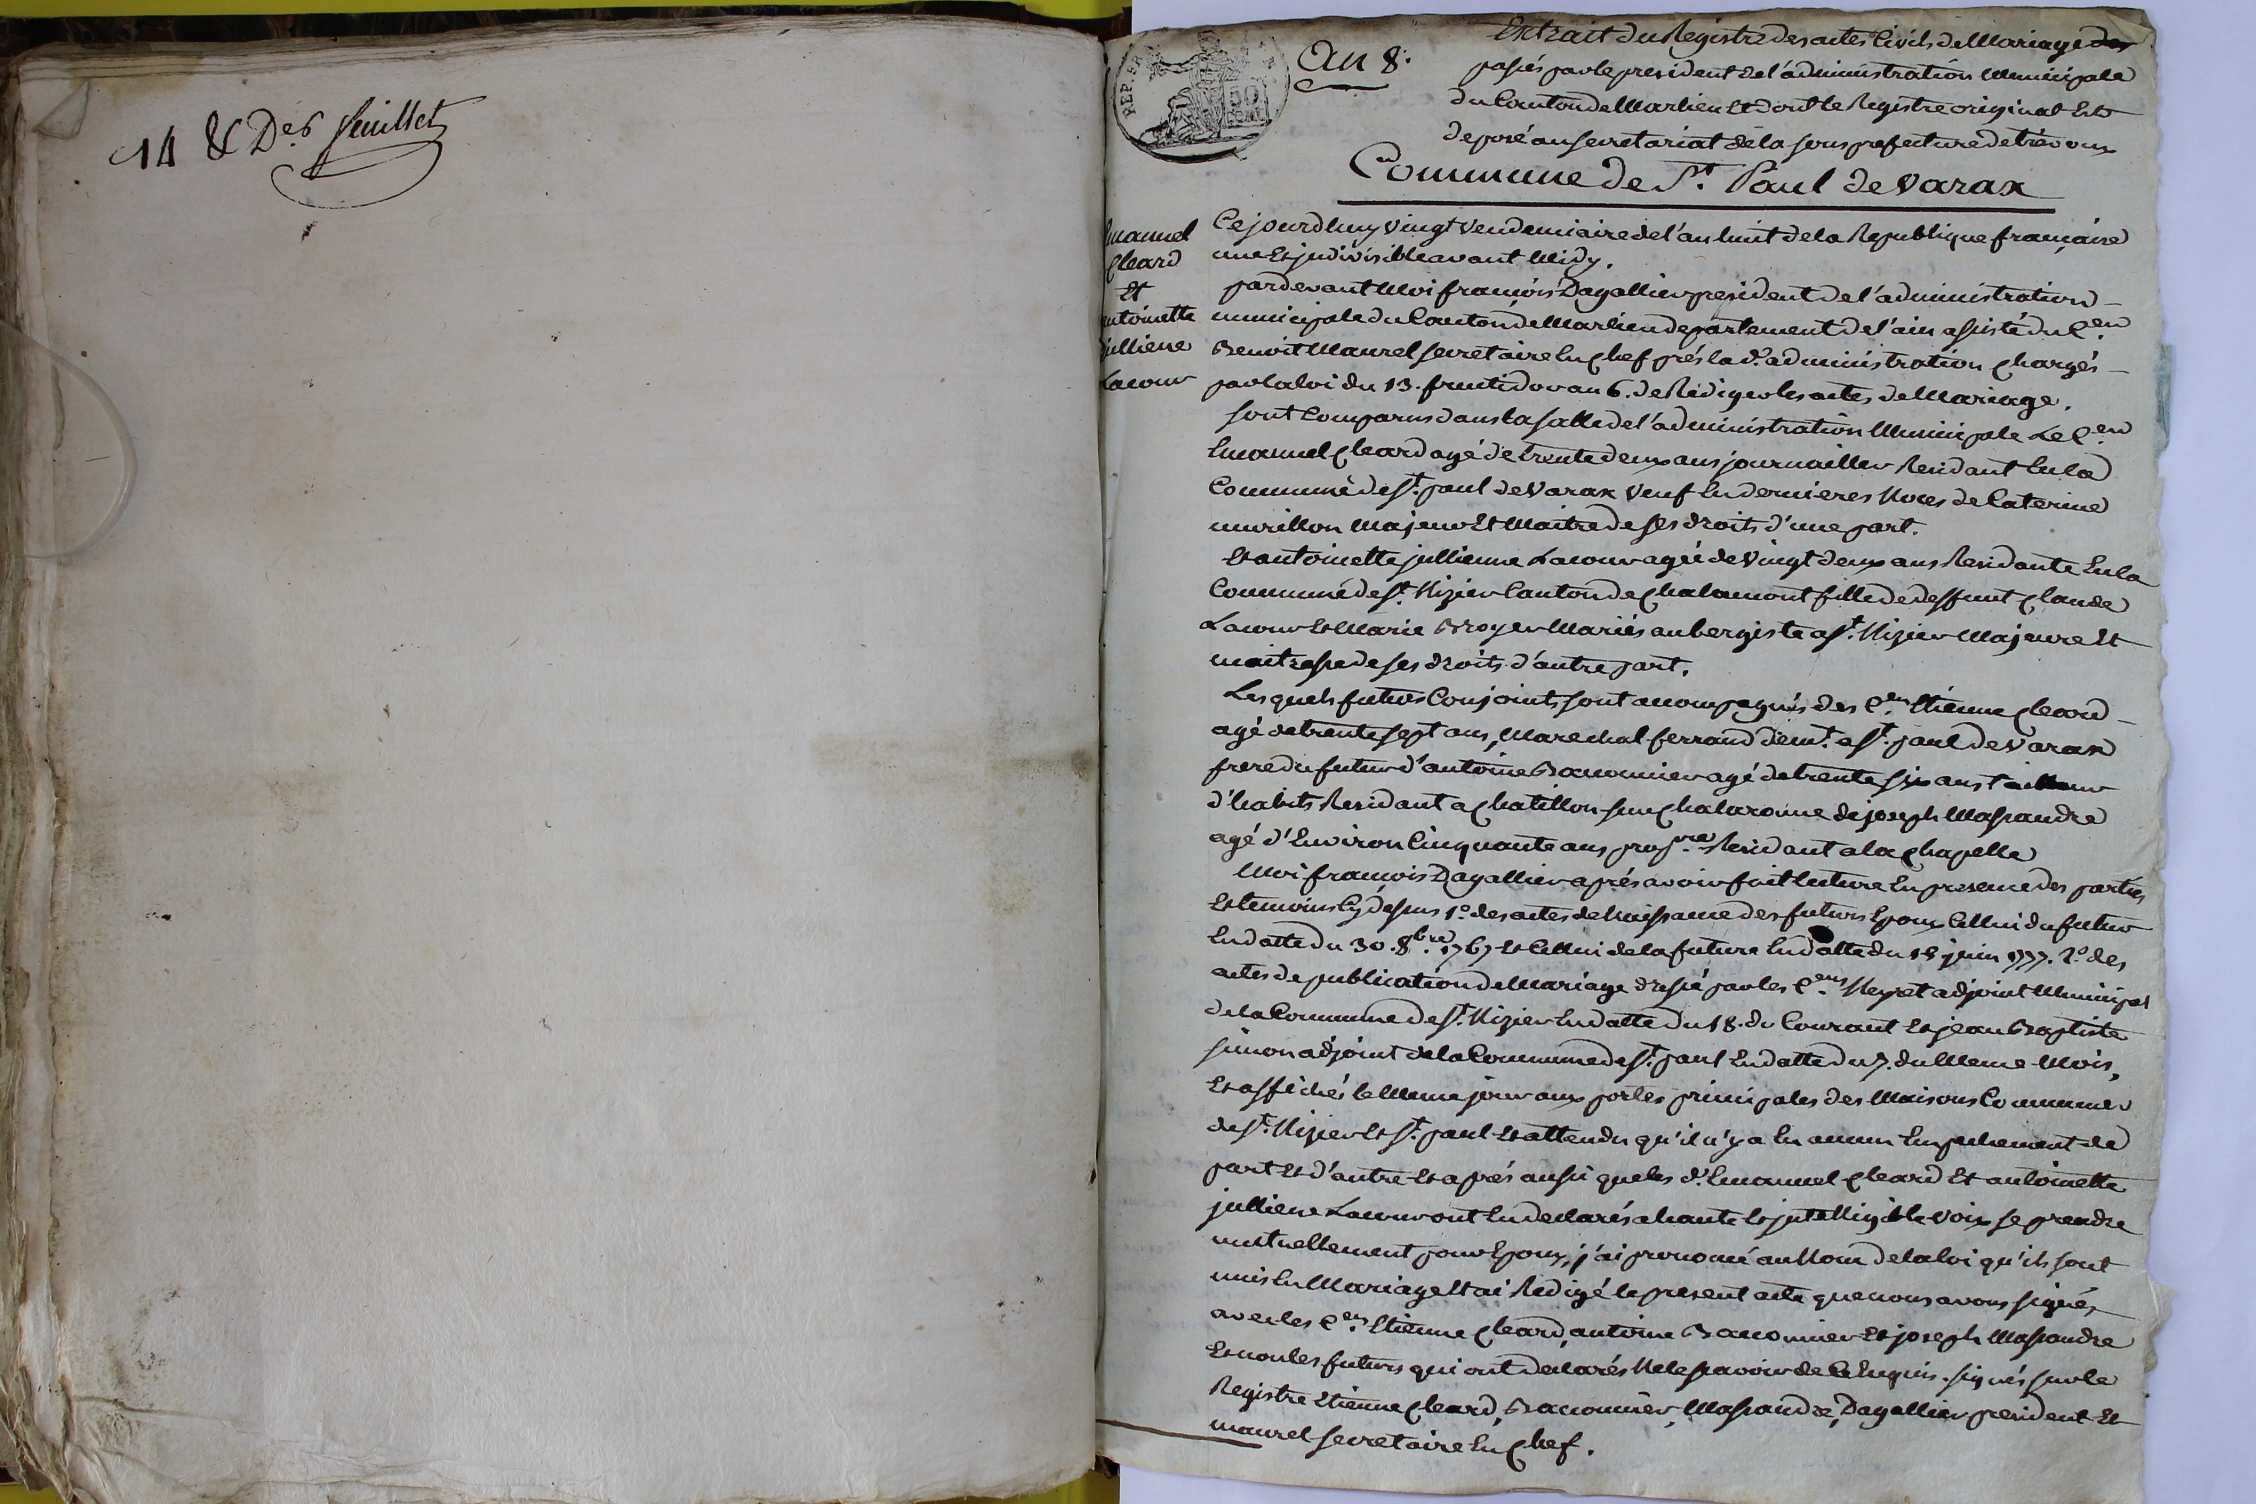 14 & Der feuillet
REP. FRA
50
CENT.
an 8.
Extrait du Registre des actes Civils de Mariage des
passés par le president de l'administration Municipale
du Canton de Marlieu Et dont le Registre original Est
deposé au secretariat de la sous prefecture de trevoux
Commune de St. Paul de Varax
Emanuel
Cleard
Et
antoinette
jullienne
Lacour
Cejourdhuy vingt Vendemiaire de l'an huit de la Republique française
une Et jndivisible avant Midy.
pardevant Moi françois Dagallier president de l'administration
municipale du Canton de Marlieu departement de l'ain assisté du Cen.
Benoit Maurel secretaire En Chef prés la de. administration Chargés
par la loi du 13. fructidor an 6. de Rédiger les actes de Mariage.
sont Comparus dans la salle de l'administration Municipale Le Cen
Emanuel Cleard agé de trente deux ans journaillier Residant En la
Commune de St. paul de Varax Veuf En dernieres Noces de Caterine
murillon Majeur Et Maitre de ses droits d'une part.
Et antoinette jullienne Lacour agée de Vingt deux ans Residante En la
Commune de St. Nizier Canton de Chalamont fille de deffunt Claude
Lacour Et Marie Broyer Mariés aubergiste a St. Nizier Majeure Et
maitresse de ses droits d'autre part.
Lesquels futurs Conjoints sont acompagnés des Cens. Etienne Cleard
agé de trente sept ans, Marechal ferrand demt. a St. paul de Varax
frere du futur d'antoine Baconnier agé de trente six ans tailleur
d'habits Residant a Chatillon sur Chalaronne de joseph Massandre
agé d'Environ Cinquante ans propre. Residant a la Chapelle
Moi françois Dagallier aprés avoir fait lecture En presence des parties
Et temoins Cy dessus 1o. des actes de Naissance des futurs Epoux Cellui du futur
En datte du 30. 8bre. 1767 Et Cellui de la future En datte du 18 juin 1777. 2o. des
actes de publication de Mariage dressé par les Cens. Neyret adjoint Municipal
de la Commune de St. Nizier En datte du 18. du Courant Et jean Baptiste
simon adjoint de la Commune de St. paul En datte du 7. du Meme Mois,
Et affichés le Meme jour aux portes principales des Maisons Communes
de St. Nizier Et St. paul Et attendu qu'il n'y a Eu aucun Empechement de
part Et d'autre Et aprés aussi que les d. Emanuel Cleard Et antoinette
jullienne Lacour ont Eu declarés a haute Et jntelligible voix se prendre
mutuellement pour Epoux, j'ai prononcé au Nom de la loi qu'ils sont
unis En Mariage Et ai Redigé le present acte que nous avons signés
avec les Cens. Etienne Cleard, antoine Baconnier Et joseph Massandre
Et non les futurs qui ont declarés Ne le sçavoir de Ce Enquis. signés sur le
Registre Etienne Cleard, Baconnier, Massandre, Dagallier president Et
maurel secretaire En Chef.